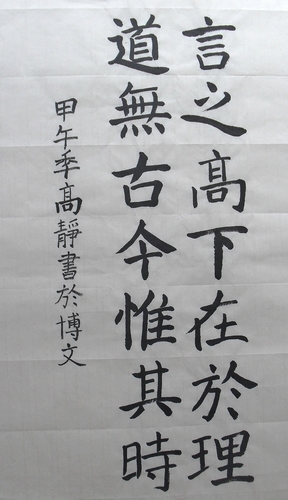 言之高下在於理
道無古今惟其時
甲午季高靜書於博文